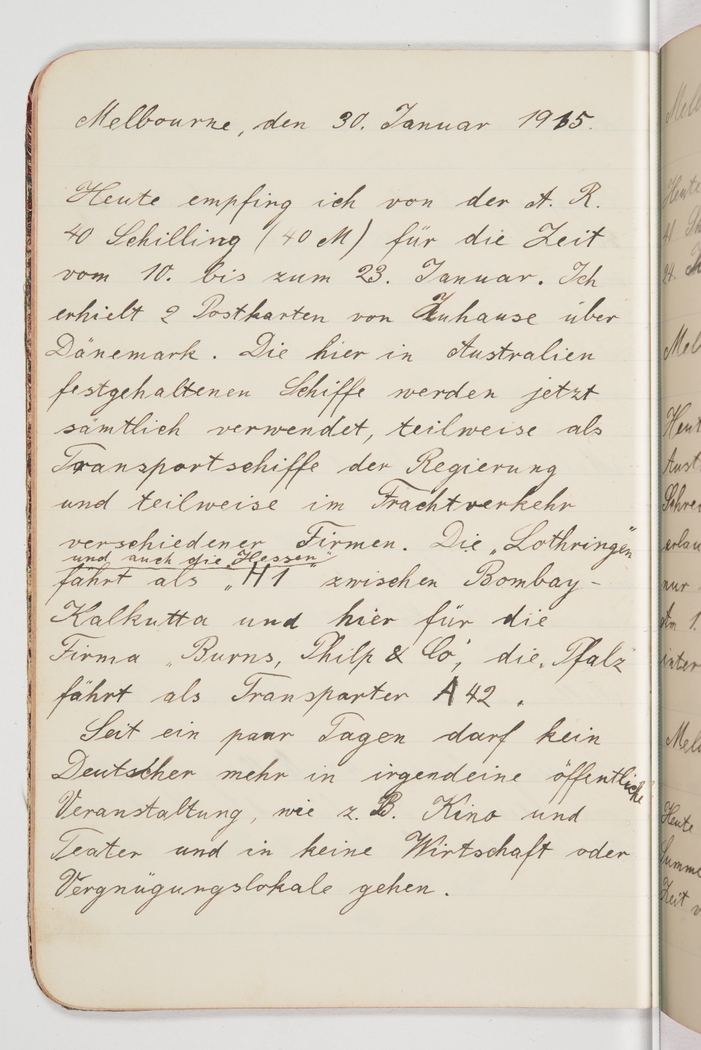 Melbourne, den 30. Januar 1915.
Heute empfing ich von der A. R.
40 Schilling (40 M) für die Zeit
vom 10. bis zum 23. Januar. Ich
erhielt 2 Postkarten von Zuhause über
Dänemark. Die hier in Australien
festgehaltenen Schiffe werden jetzt
sämtlich verwendet, teilweise als
Transportschiffe der Regierung
und teilweise im Frachtverkehr
verschiedener Firmen. Die „Lothringen"
und auch die „Hessen"
fährt als „H1" zwischen Bombay-
Kalkutta und hier für die
Firma „Burns, Philp & Co", die „Pfalz"
fährt als Transparter A 42.
Seit ein paar Tagen darf kein
Deutscher mehr in irgendeine öffentliche
Veranstaltung, wie z. B. Kino und
Teater und in keine Wirtschaft oder
Vergnügungslokale gehen.
Heute
24.
Mel
Heut
Aust
erlau
nur
An 1.
inter
Mel
Heute
Summe
Zeit v